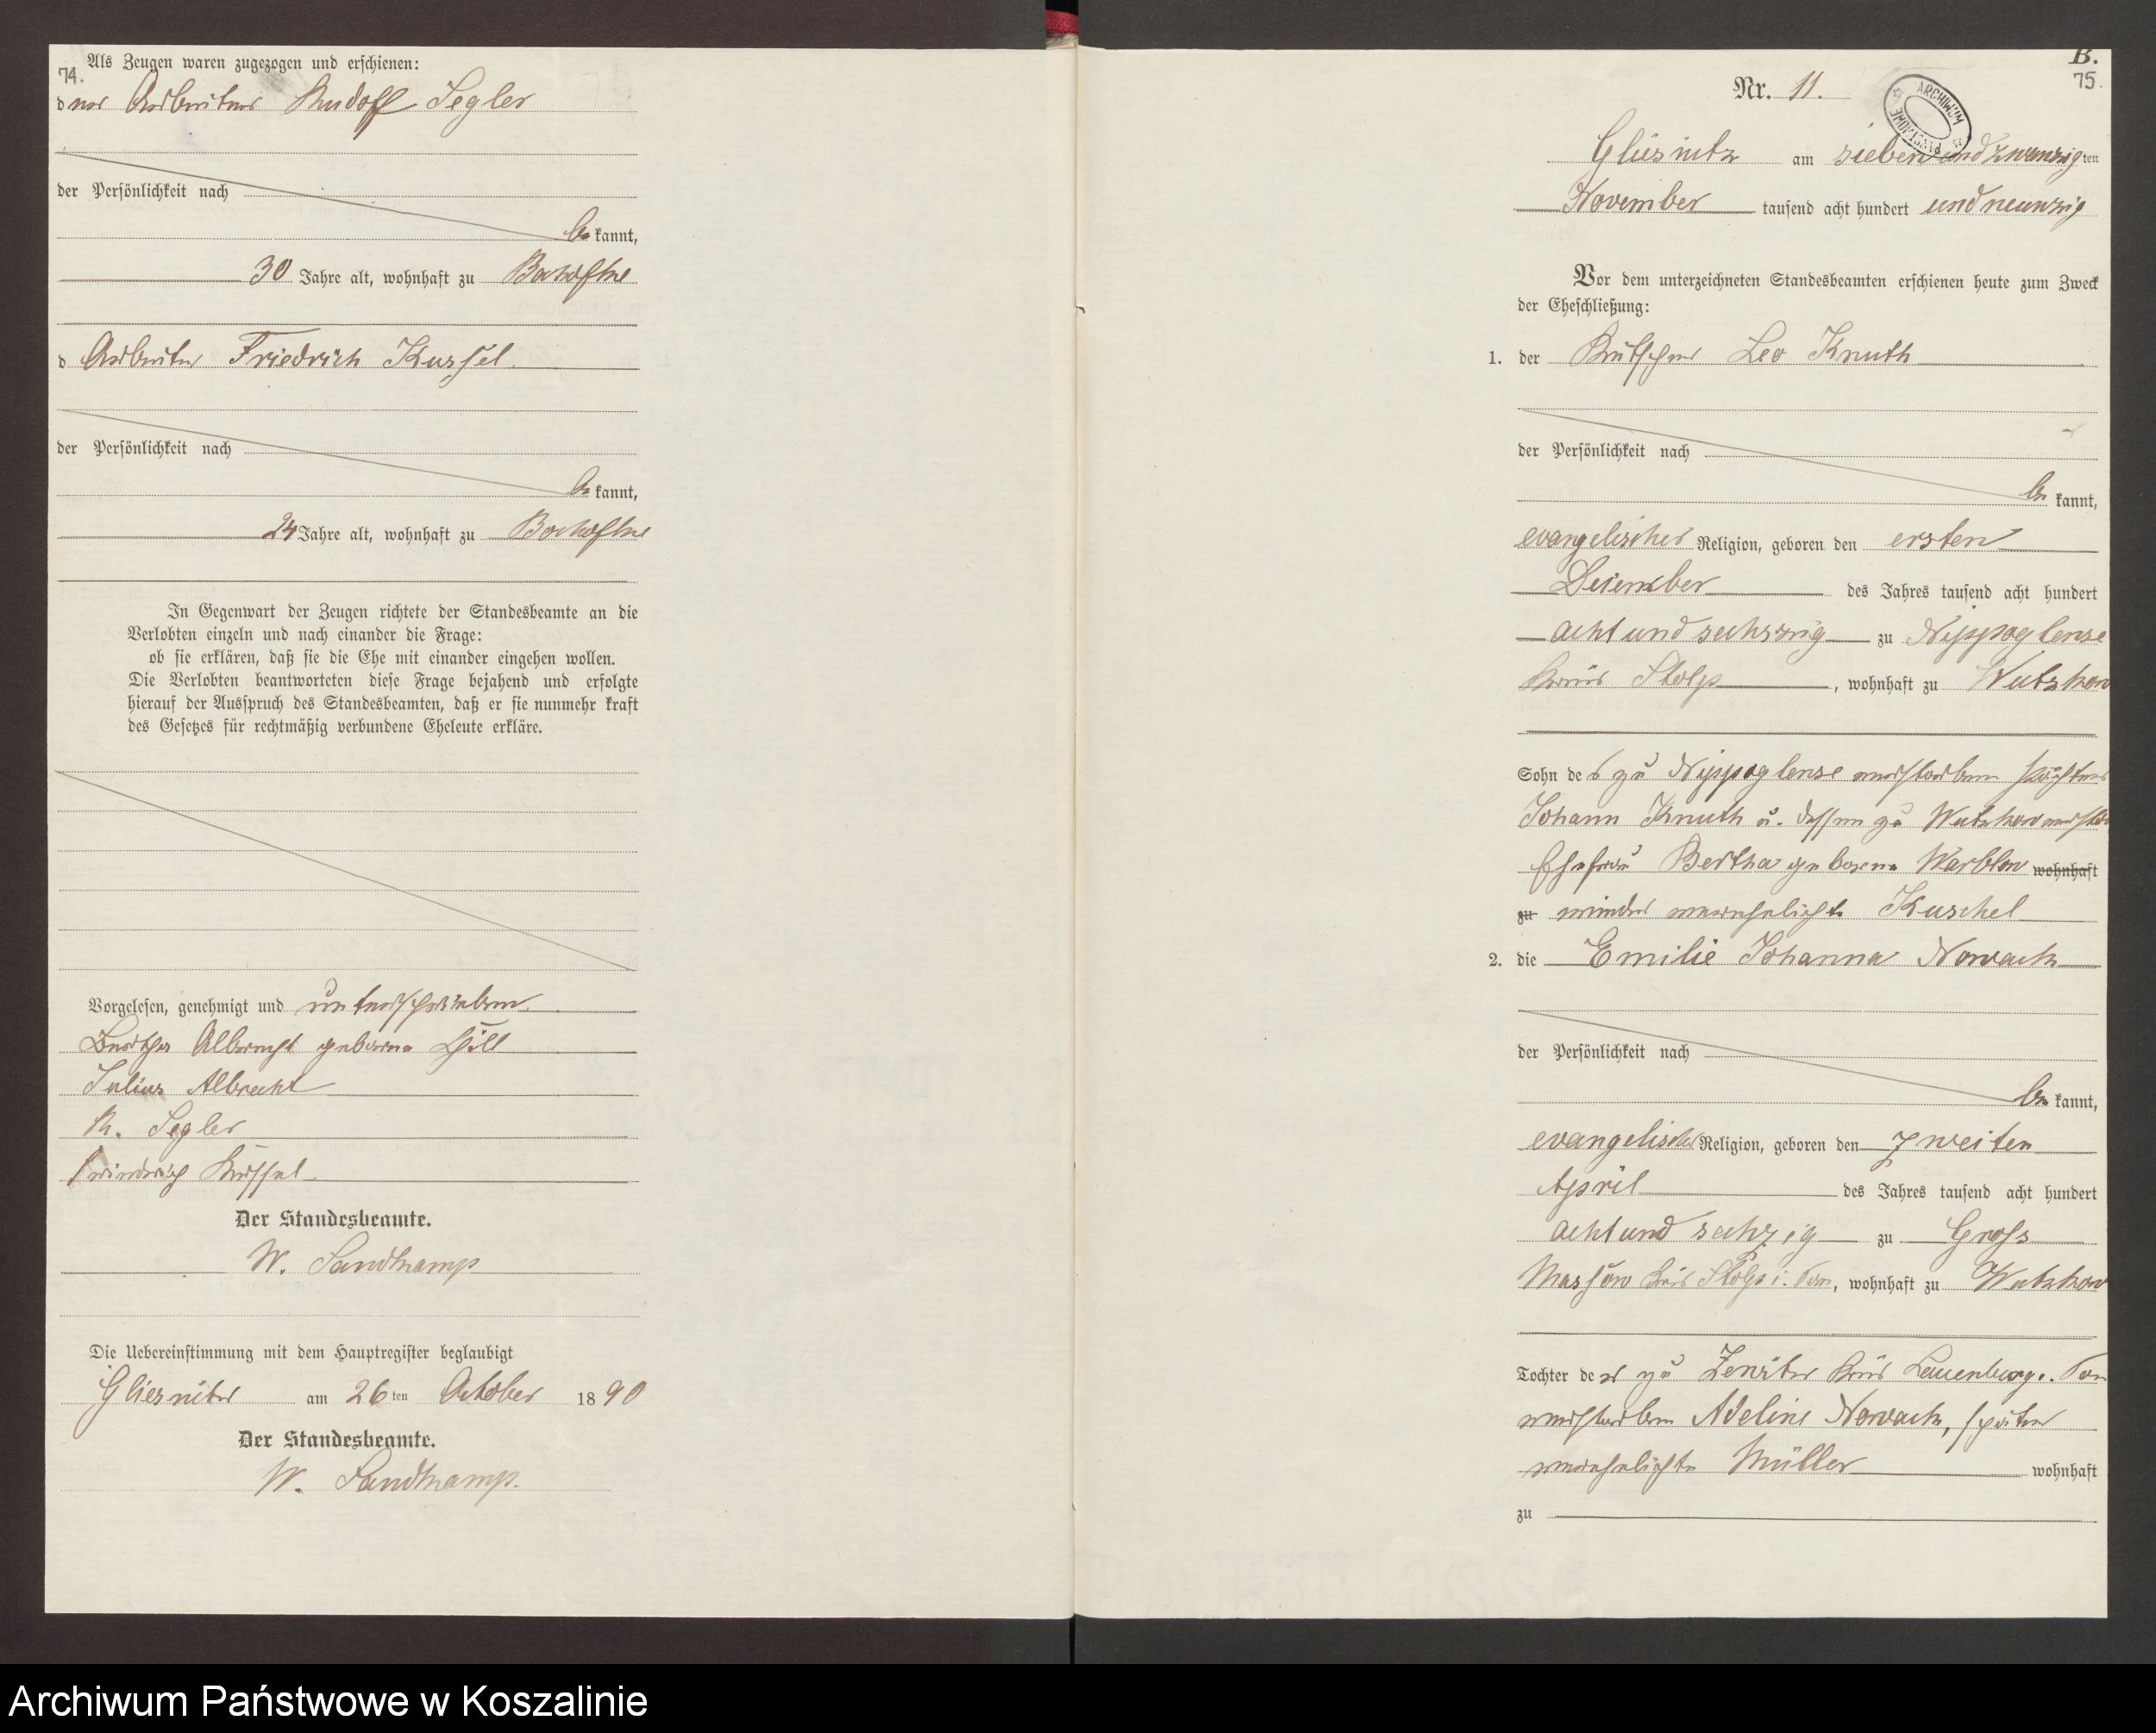 74.
Als Zeugen waren zugezogen und erschienen:
der Arbeiter Rudolf Segler
der Persönlichkeit nach
be kannt,
30 Jahre alt, wohnhaft zu Bochofke
d Arbeiter Friedrich Kussel.
der Persönlichkeit nach
be kannt,
24 Jahre alt, wohnhaft zu Bochofke
In Gegenwart der Zeugen richtete der Standesbeamte an die
Verlobten einzeln und nach einander die Frage:
ob sie erklären, daß sie die Ehe mit einander eingehen wollen.
Die Verlobten beantworteten diese Frage bejahend und erfolgte
hierauf der Ausspruch des Standesbeamten, daß er sie nunmehr kraft
des Gesetzes für rechtmäßig verbundene Eheleute erkläre.
Vorgelesen, genehmigt und unterschrieben.
Bertha Albrecht geborne Hill
Julius Albrecht
R. Segler
Friedrich Kussel
Der Standesbeamte.
W. Sandkamp
Die Uebereinstimmung mit dem Hauptregister beglaubigt
Gliesnitz am 26ten October 1890
Der Standesbeamte.
W. Sandkamp.
B.
75.
Nr. 11.
ARCHIWUM PAŃSTWOWE
Gliesnitz am siebenundzwanzigten
November tausend acht hundert und neunzig
Vor dem unterzeichneten Standesbeamten erschienen heute zum Zweck
der Eheschließung:
1. der Kutscher Leo Knuth
der Persönlichkeit nach
be kannt,
evangelischer Religion, geboren den ersten
Dezember des Jahres tausend acht hundert
acht und sechszig zu Nippoglense
Kreis Stolp, wohnhaft zu Wutzkow
Sohn des zu Nippoglense verstorbenen Pächters
Johann Knuth u. dessen zu Wutzkow
Ehefrau Bertha geborene Warblow wohnhaft
zu wieder verehelichte Kuschel
2. die Emilie Johanna Nowack
der Persönlichkeit nach
be kannt,
evangelischer Religion, geboren den zweiten
April des Jahres tausend acht hundert
acht und sechzig zu Gross
Massow Kreis Stolp i. Pom, wohnhaft zu Wutzkow
Tochter der zu Zewitz Kreis Lauenburg i. Pom
verstorbenen Adeline Nowack, später
verehelichte Müller wohnhaft
zu
Archiwum Państwowe w Koszalinie